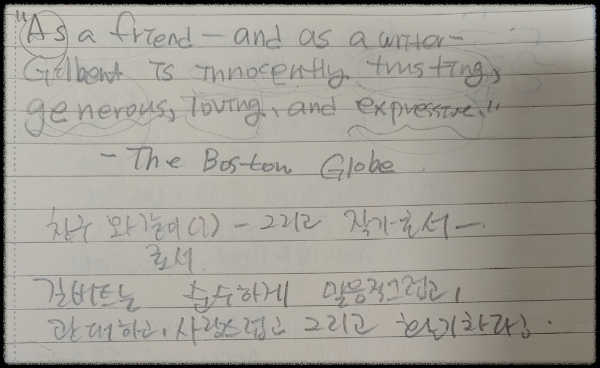 "As a friend — and as a writer —
Gilbert is innocently trusting,
generous, loving, and expressive."
- The Boston Globe
친구 와같이(?) - 그리고 작가로서 -
로서
길버트는 순수하게
관대하고, 사랑스럽고 그리고